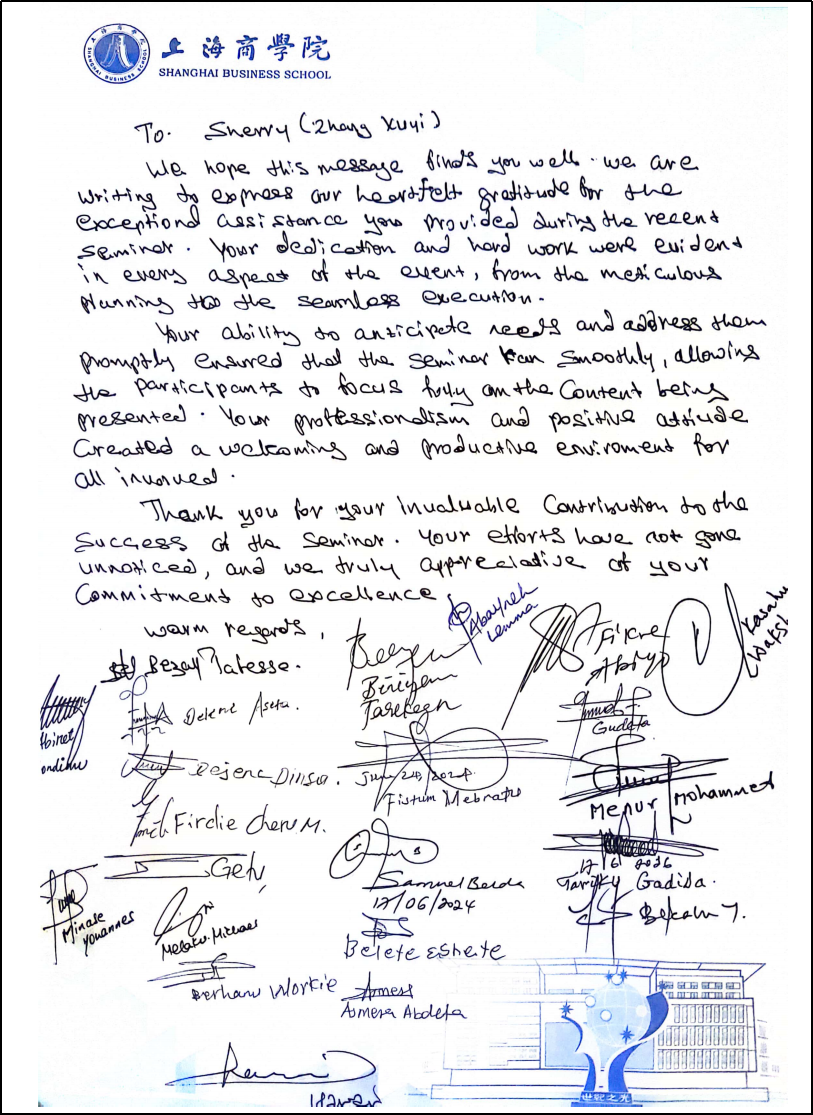 上海商學院
SHANGHAI BUSINESS SCHOOL
To. Sherry (Zhang Xuyi)
We hope this message finds you well. we are
writing to express our heartfelt gratitude for the
exceptional assistance you provided during the recent
seminar. Your dedication and hard work were evident
in every aspect of the event, from the meticulous
planning to the seamless execution.
Your ability to anticipate needs and address them
promptly ensured that the seminar ran smoothly, allowing
the participants to focus fully on the content being
presented. Your professionalism and positive attitude
Created a welcoming and productive enviroment for
all involved.
Thank you for your invaluable Contribution to the
Success of the Seminar. Your efforts have not gone
unnoticed, and we truly appreciative of your
Commitment to excellence
warm regards,
Abayneh
Lemma
Kasahu
Fikre
Bezay Tatesse.
Biniyam
Tarekegn
Gudeta
Dejene Dinsa.
June 24/2024
Fistum Mebratu
Menur Mohammed
Firdie Cheru M.
Getu
Samuel
17/06/2024
Gadisa.
Minase
Youannes
Melaku Michael
Belete Eshete
Berhanu Workie
Asmera Abdeta
世紀之光